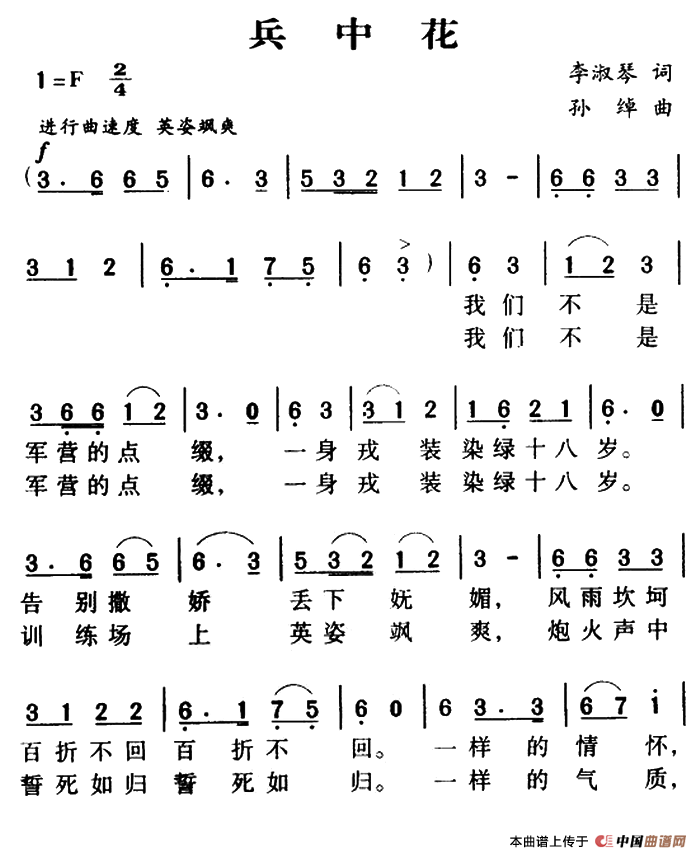 兵中花
1=F 2/4
李淑琴 词
孙绰 曲
进行曲速度 英姿飒爽
f
(3. 6 6 5 | 6. 3 | 5 3 2 1 2 | 3 - | 6 6 3 3 |
3 1 2 | 6. 1 7 5 | 6 3 ) | 6 3 | 1 2 3 |
我们不是
我们不是
3 6 6 1 2 | 3. 0 | 6 3 | 3 1 2 | 1 6 2 1 | 6. 0 |
军营的点缀，一身戎装染绿十八岁。
军营的点缀，一身戎装染绿十八岁。
3. 6 6 5 | 6. 3 | 5 3 2 1 2 | 3 - | 6 6 3 3 |
告别撒娇丢下妩媚，风雨坎坷
训练场上英姿飒爽，炮火声中
3 1 2 2 | 6. 1 7 5 | 6 0 | 6 3. 3 | 6 7 i |
百折不回百折不回。一样的情怀，
誓死如归誓死如归。一样的气质，
本曲谱上传于 中国曲谱网